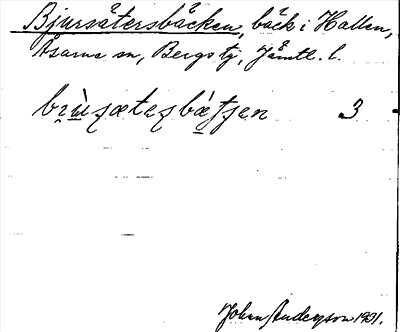 Bjursätersbäcken, bäck i Hallen,
Åsarne sn, Bergs tg, Jämtl. l.
brùsætesbætsen 3
Johan Anderson 1931.